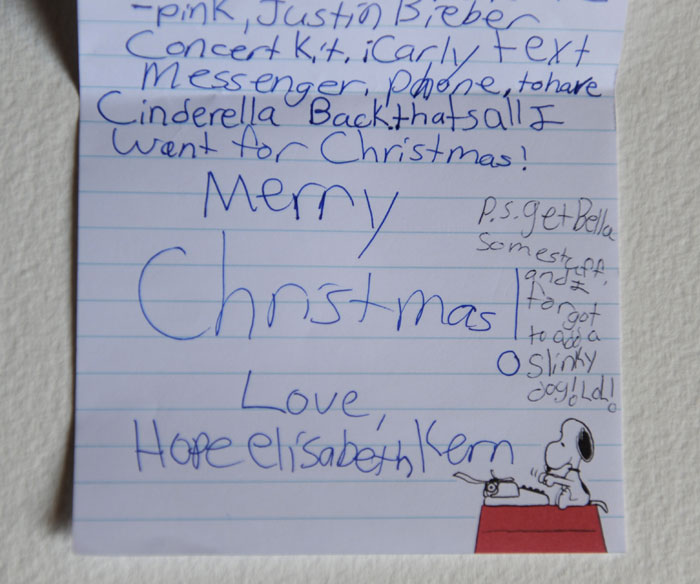 -pink, Justin Bieber
Concert Kit, iCarly text
Messenger, phone, to have
Cinderella Back.thatsall I
want for Christmas!
Merry
Christmas!
Love,
Hope elisabeth Kern
p.s. get Bella
Some stuff.
and I
forgot
to add a
Slinky
dog! LoL!